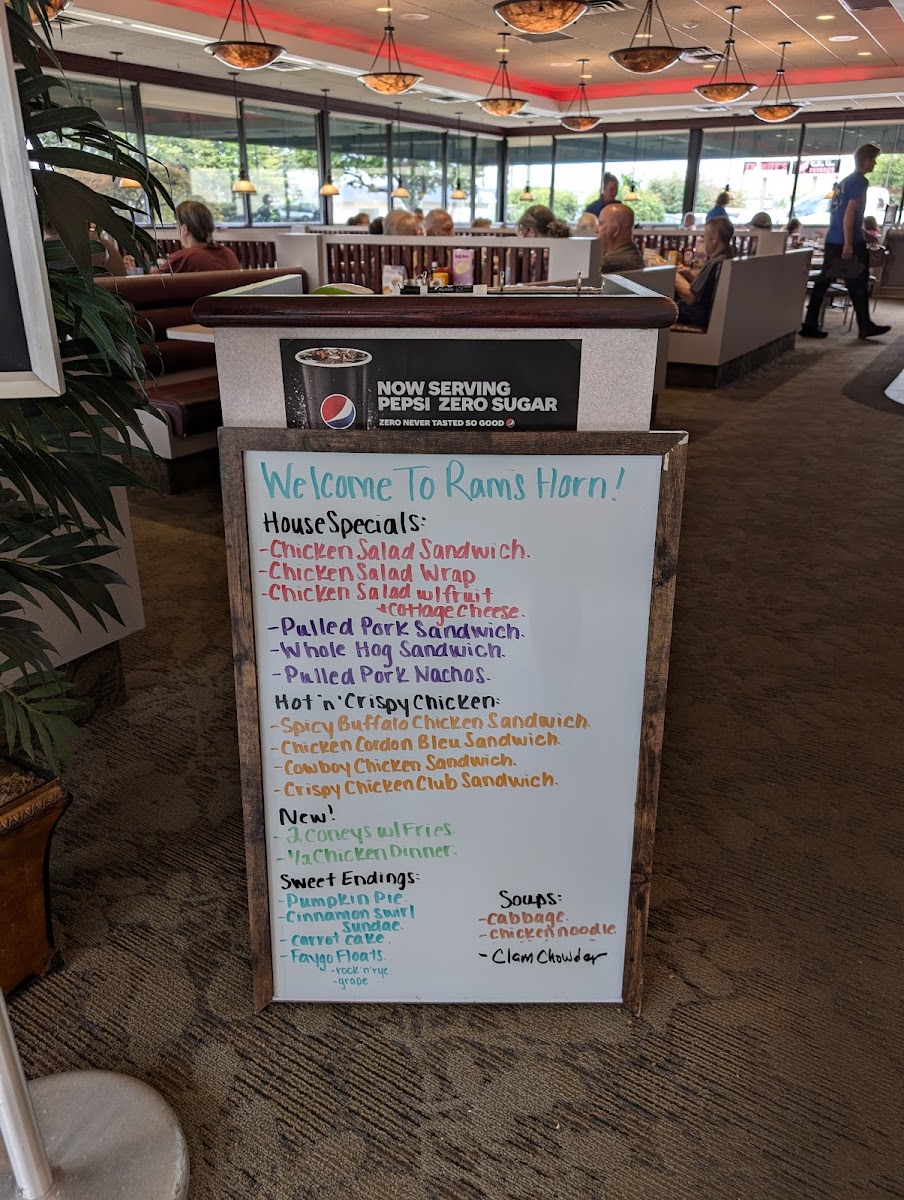 NOW SERVING
PEPSI ZERO SUGAR
ZERO NEVER TASTED SO GOOD
Welcome To Rams Horn!
House Specials:
-Chicken Salad Sandwich.
-Chicken Salad Wrap.
-Chicken Salad w/fruit
+cottage cheese.
-Pulled Pork Sandwich.
-Whole Hog Sandwich.
-Pulled Pork Nachos.
Hot 'n' Crispy Chicken:
-Spicy Buffalo Chicken Sandwich.
-Chicken Cordon Bleu Sandwich.
-Cowboy Chicken Sandwich.
-Crispy Chicken Club Sandwich.
New!
-2 coneys w/Fries.
-1/2 Chicken Dinner.
Sweet Endings:
-Pumpkin Pie.
-Cinnamon Swirl
Sundae.
-Carrot Cake.
-Faygo Floats.
-rock 'n' rye
-grape
Soups:
-Cabbage.
-Chicken noodle.
-Clam Chowder